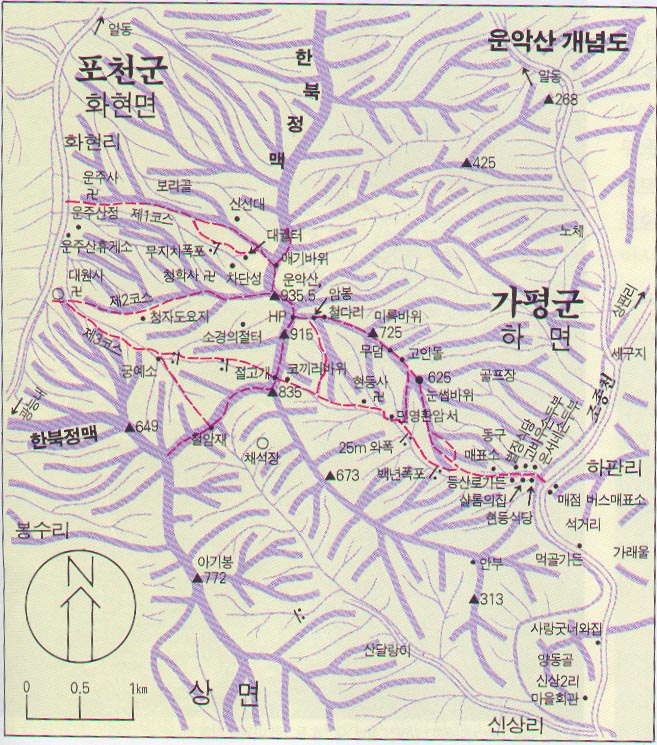 일동
운악산 개념도
포천군
화현면
한북정맥
일동
268
425
화현리
운주사
보리골
운주산정
제1코스
신선대
대궐터
노체
운주산휴게소
무지치폭포
애기바위
청학사
차단성
운악산
대원사
935.5
암봉
가평군
상판리
제2코스
청자도요지
HP
철다리
미륵바위
하 면
소경의절터
915
725
제3코스
무덤
고인돌
세구지
궁예소
절고개
코끼리바위
625
골프장
조종천
835
현등사
눈썹바위
한북정맥
649
민영환암서
철암재
채석장
25m 와폭
동구
매표소
하판리
673
백년폭포
등산로가든
매점 버스매표소
살롬의집
현등식당
석거리
봉수리
아기봉
772
안부
먹골가든
가래울
313
N
사랑굿너와집
산달랑이
양동골
신상2리
마을회관
0 0.5 1km
상 면
신상리